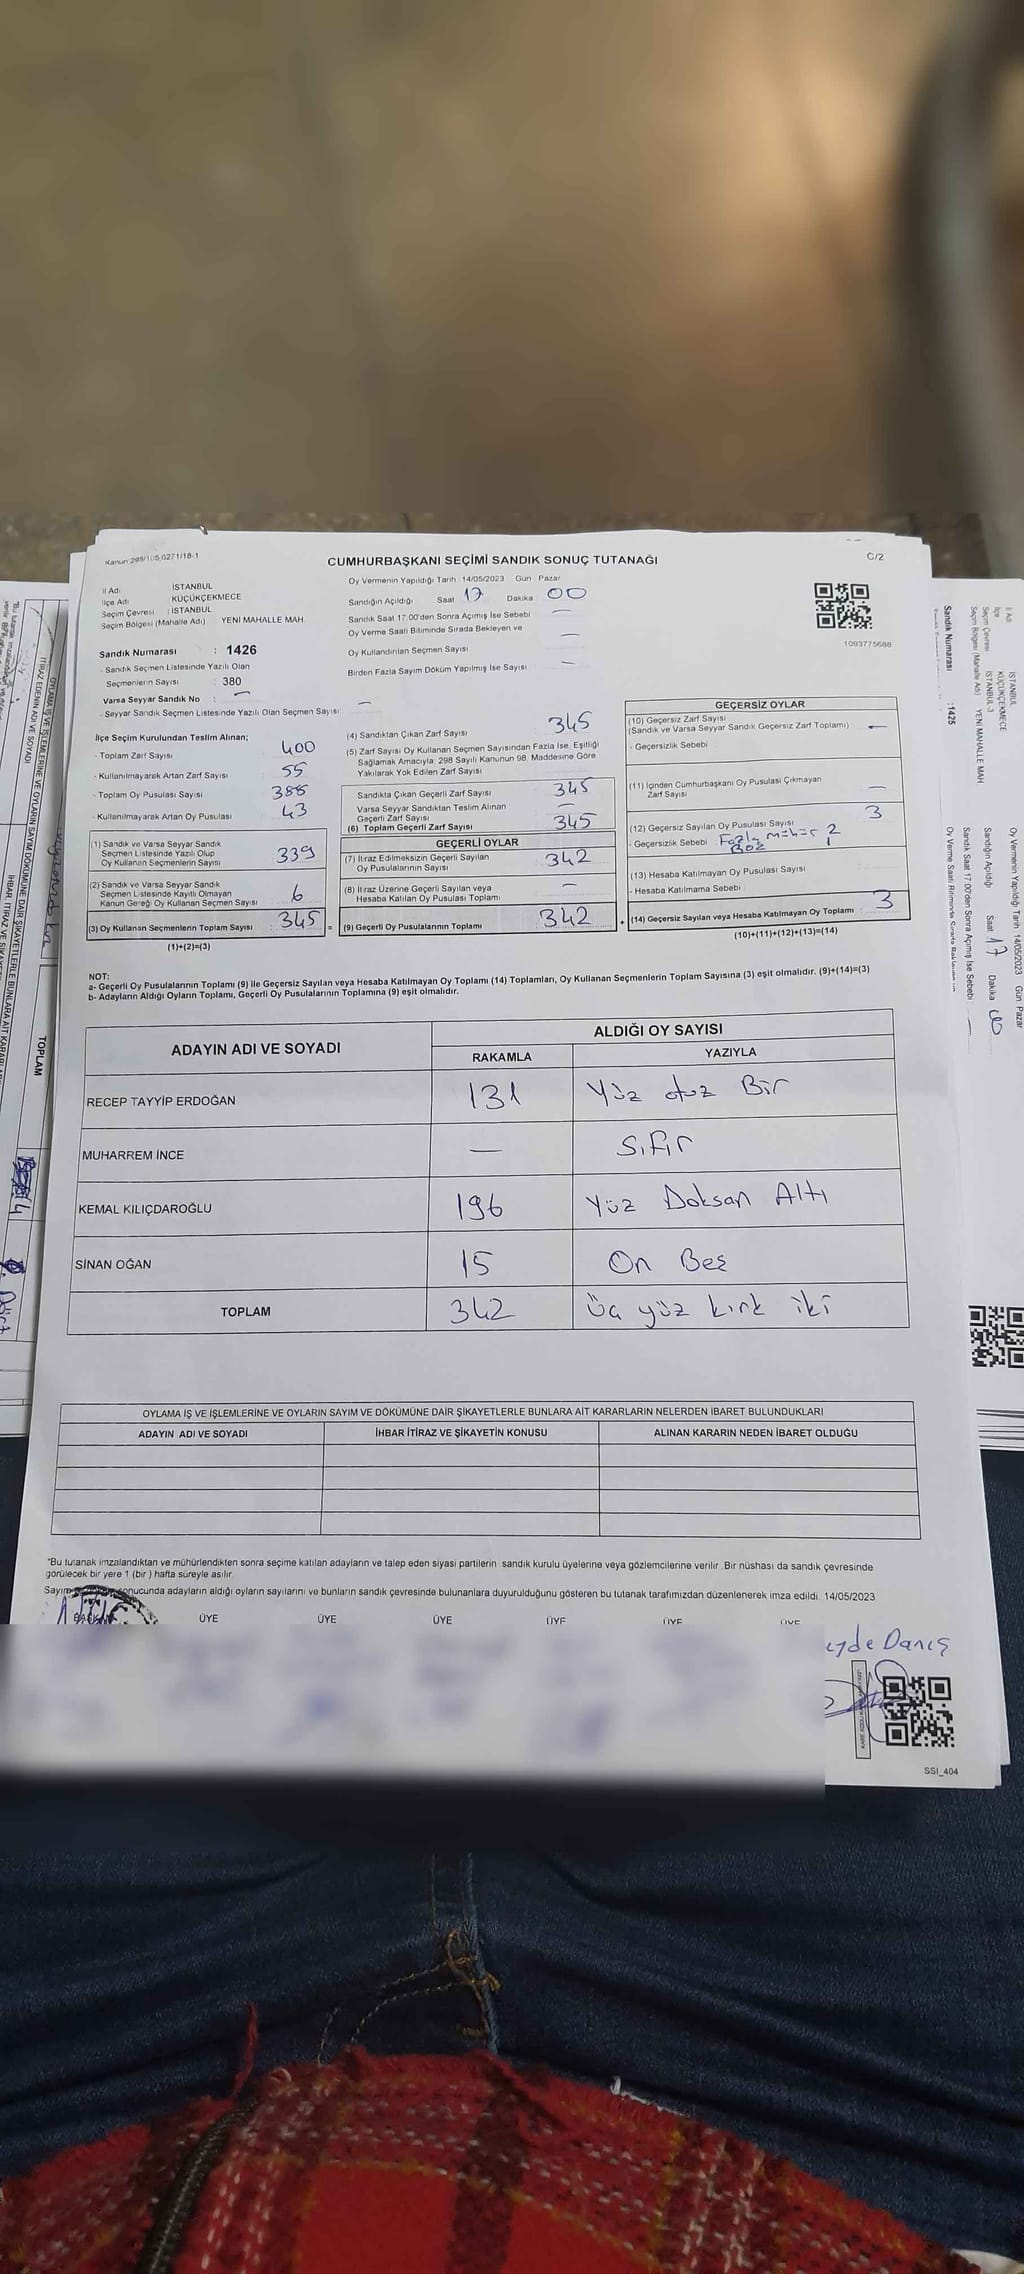 Kanun 298/105,6271/18-1
CUMHURBAŞKANI SEÇİMİ SANDIK SONUÇ TUTANAĞI
C/2
İl Adı : İSTANBUL
İlçe Adı KÜÇÜKÇEKMECE
Seçim Çevresi : İSTANBUL
Seçim Bölgesi (Mahalle Adı) YENİ MAHALLE MAH.
Sandık Numarası : 1426
- Sandık Seçmen Listesinde Yazılı Olan
Seçmenlerin Sayısı : 380
Varsa Seyyar Sandık No : —
- Seyyar Sandık Seçmen Listesinde Yazılı Olan Seçmen Sayısı —
Oy Vermenin Yapıldığı Tarih : 14/05/2023 Gün : Pazar
Sandığın Açıldığı Saat 17 Dakika 00
Sandık Saat 17.00'den Sonra Açımış İse Sebebi —
Oy Verme Saati Bitiminde Sırada Bekleyen ve
Oy Kullandırılan Seçmen Sayısı —
Birden Fazla Sayım Döküm Yapılmış İse Sayısı —
1093775688
İlçe Seçim Kurulundan Teslim Alınan;
- Toplam Zarf Sayısı 400
- Kullanılmayarak Artan Zarf Sayısı 55
- Toplam Oy Pusulası Sayısı 388
- Kullanılmayarak Artan Oy Pusulası 43
(1) Sandık ve Varsa Seyyar Sandık
Seçmen Listesinde Yazılı Olup
Oy Kullanan Seçmenlerin Sayısı 339
(2) Sandık ve Varsa Seyyar Sandık
Seçmen Listesinde Kayıtlı Olmayan
Kanun Gereği Oy Kullanan Seçmen Sayısı 6
(3) Oy Kullanan Seçmenlerin Toplam Sayısı 345
(1)+(2)=(3)
(4) Sandıktan Çıkan Zarf Sayısı 345
(5) Zarf Sayısı Oy Kullanan Seçmen Sayısından Fazla İse, Eşitliği
Sağlamak Amacıyla, 298 Sayılı Kanunun 98. Maddesine Göre
Yakılarak Yok Edilen Zarf Sayısı
Sandıkta Çıkan Geçerli Zarf Sayısı 345
Varsa Seyyar Sandıktan Teslim Alınan
Geçerli Zarf Sayısı —
(6) Toplam Geçerli Zarf Sayısı 345
GEÇERLİ OYLAR
(7) İtiraz Edilmeksizin Geçerli Sayılan
Oy Pusulalarının Sayısı 342
(8) İtiraz Üzerine Geçerli Sayılan veya
Hesaba Katılan Oy Pusulası Toplamı —
= (9) Geçerli Oy Pusulalarının Toplamı 342
GEÇERSİZ OYLAR
(10) Geçersiz Zarf Sayısı
(Sandık ve Varsa Seyyar Sandık Geçersiz Zarf Toplamı) —
- Geçersizlik Sebebi
(11) İçinden Cumhurbaşkanı Oy Pusulası Çıkmayan
Zarf Sayısı —
(12) Geçersiz Sayılan Oy Pusulası Sayısı 3
- Geçersizlik Sebebi Fazla mühür 2
Boş 1
(13) Hesaba Katılmayan Oy Pusulası Sayısı
- Hesaba Katılmama Sebebi
+ (14) Geçersiz Sayılan veya Hesaba Katılmayan Oy Toplamı 3
(10)+(11)+(12)+(13)=(14)
NOT:
a- Geçerli Oy Pusulalarının Toplamı (9) ile Geçersiz Sayılan veya Hesaba Katılmayan Oy Toplamı (14) Toplamları, Oy Kullanan Seçmenlerin Toplam Sayısına (3) eşit olmalıdır. (9)+(14)=(3)
b- Adayların Aldığı Oyların Toplamı, Geçerli Oy Pusulalarının Toplamına (9) eşit olmalıdır.
ADAYIN ADI VE SOYADI
ALDIĞI OY SAYISI
RAKAMLA YAZIYLA
RECEP TAYYİP ERDOĞAN 131 Yüz otuz Bir
MUHARREM İNCE — Sıfır
KEMAL KILIÇDAROĞLU 196 Yüz Doksan Altı
SİNAN OĞAN 15 On Beş
TOPLAM 342 Üç yüz kırk iki
OYLAMA İŞ VE İŞLEMLERİNE VE OYLARIN SAYIM VE DÖKÜMÜNE DAİR ŞİKAYETLERLE BUNLARA AİT KARARLARIN NELERDEN İBARET BULUNDUKLARI
ADAYIN ADI VE SOYADI İHBAR İTİRAZ VE ŞİKAYETİN KONUSU ALINAN KARARIN NEDEN İBARET OLDUĞU
*Bu tutanak imzalandıktan ve mühürlendikten sonra seçime katılan adayların ve talep eden siyasi partilerin sandık kurulu üyelerine veya gözlemcilerine verilir. Bir nüshası da sandık çevresinde
görülecek bir yere 1 (bir ) hafta süreyle asılır.
Sayım sonucunda adayların aldığı oyların sayılarını ve bunların sandık çevresinde bulunanlara duyurulduğunu gösteren bu tutanak tarafımızdan düzenlenerek imza edildi. 14/05/2023
BAŞKAN ÜYE ÜYE ÜYE ÜYE ÜYE ÜYE
Danış
SSI_404
İTİRAZ EDENİN ADI VE SOYADI
TOPLAM
İl Adı İSTANBUL
İlçe KÜÇÜKÇEKMECE
Seçim Çevresi İSTANBUL-3
Seçim Bölgesi (Mahalle Adı) YENİ MAHALLE MAH
Sandık Numarası : 1425
Oy Vermenin Yapıldığı Tarih : 14/05/2023 Gün Pazar
Sandığın Açıldığı Saat 17 Dakika 00
Sandık Saat 17.00'den Sonra Açımış İse Sebebi